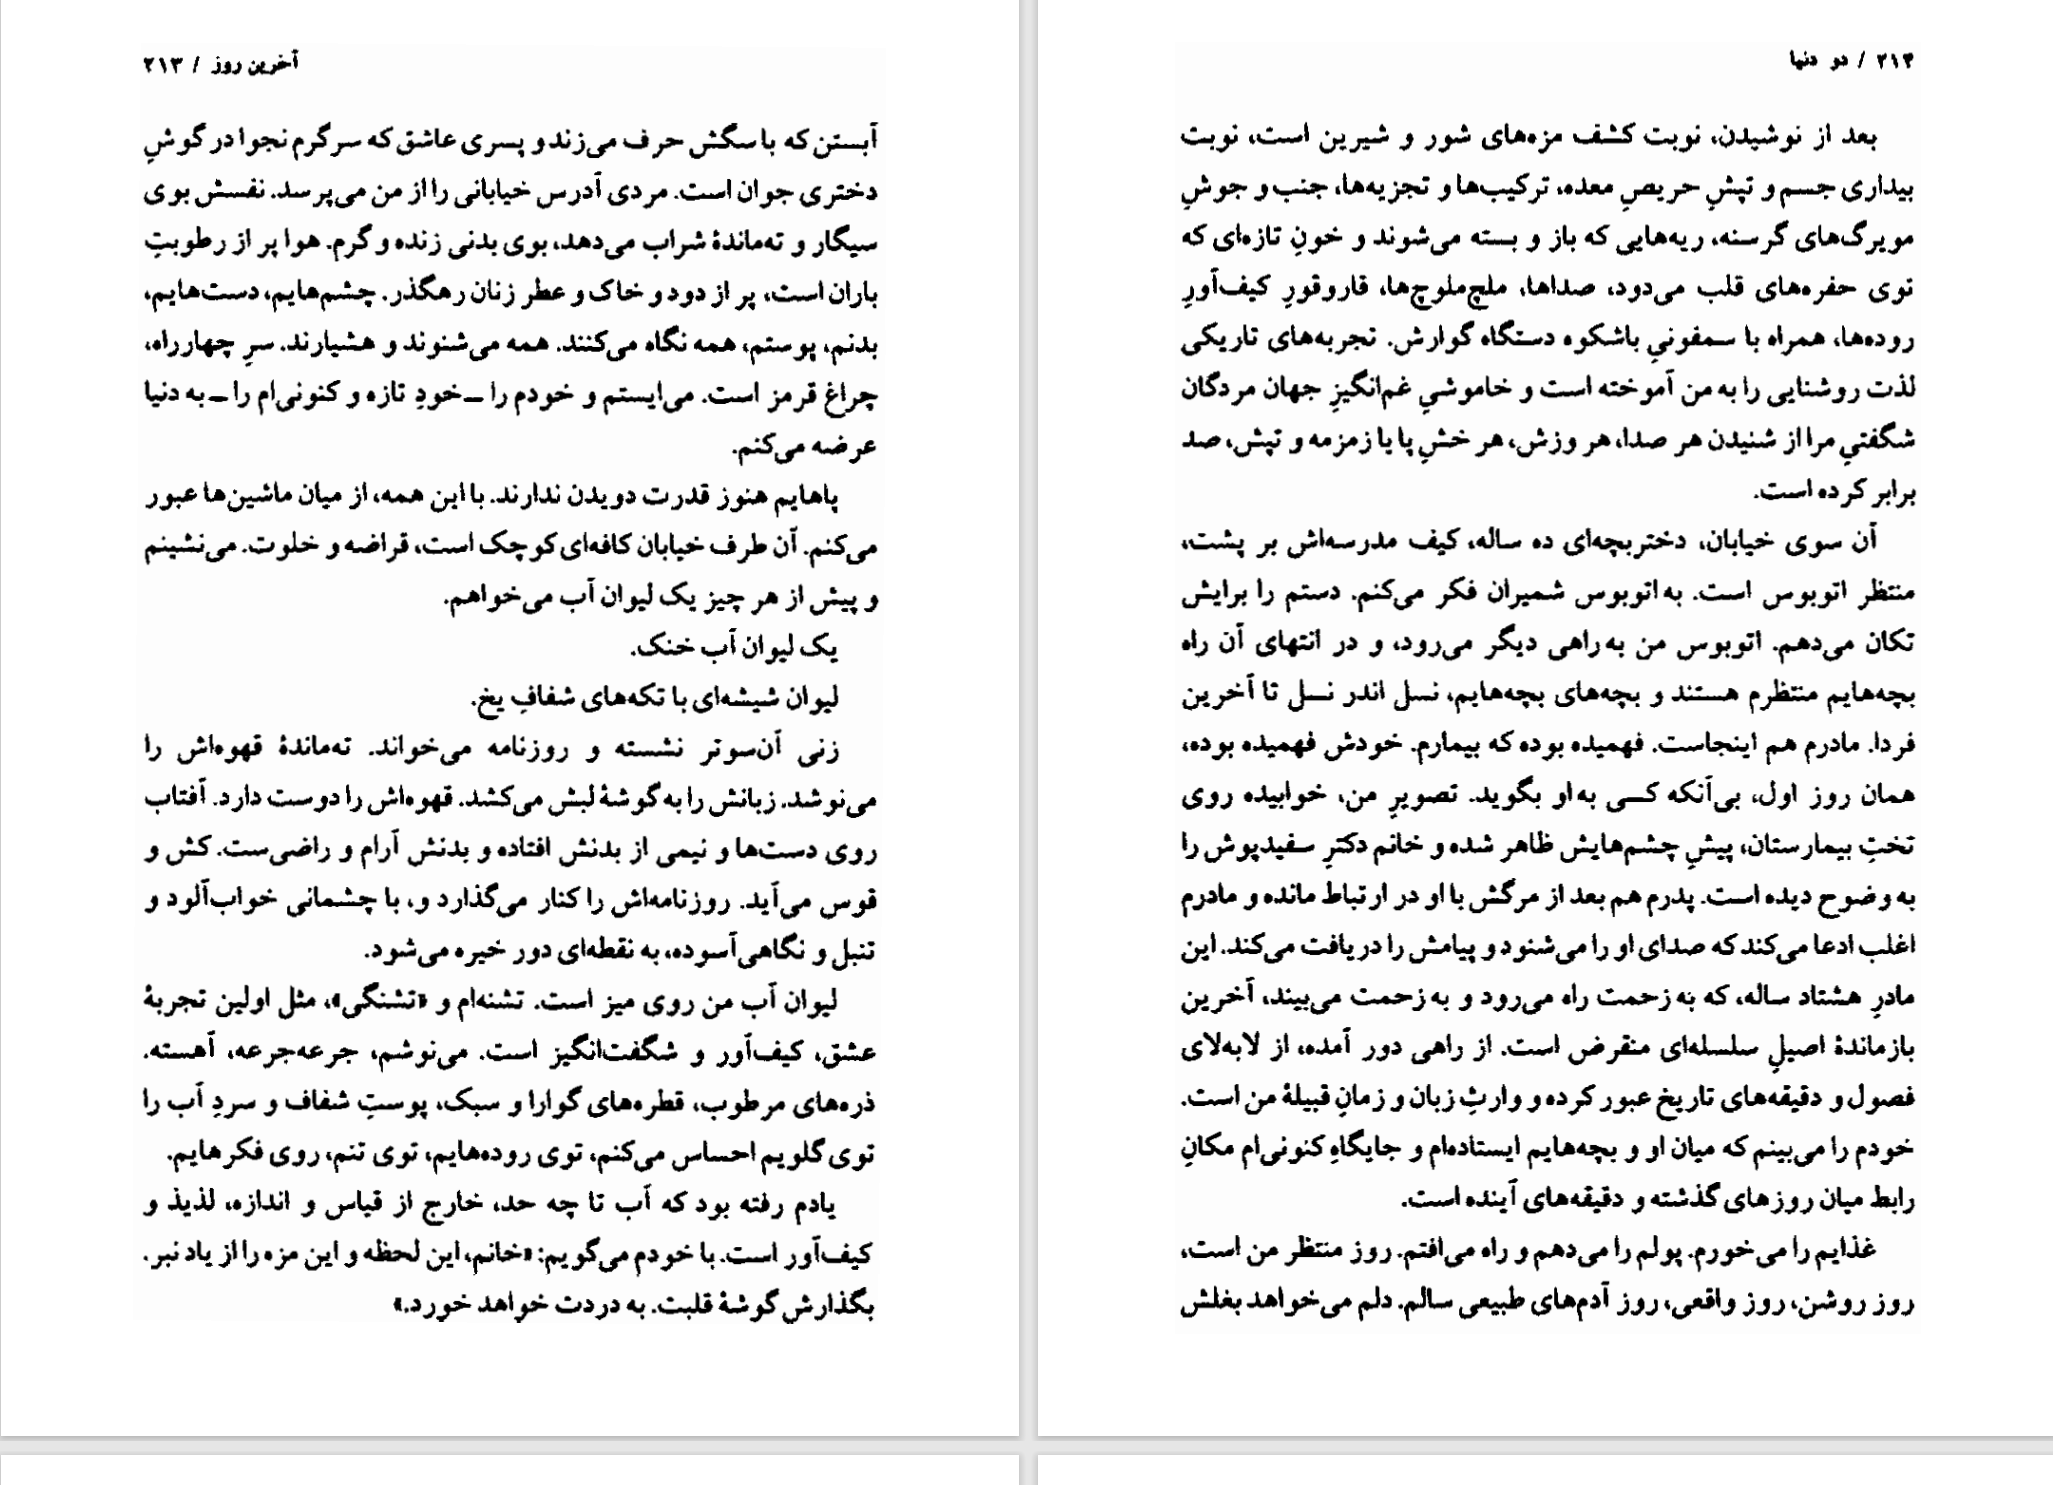 آخرین روز / ۲۱۳
آبستن که با سگش حرف می‌زند و پسری عاشق که سرگرم نجوا در گوشِ
دختری جوان است. مردی آدرس خیابانی را از من می‌پرسد. نفسش بوی
سیگار و ته‌ماندهٔ شراب می‌دهد، بوی بدنی زنده و گرم. هوا پر از رطوبتِ
باران است، پر از دود و خاک و عطر زنان رهگذر. چشم‌هایم، دست‌هایم،
بدنم، پوستم، همه نگاه می‌کنند. همه می‌شنوند و هشیارند. سرِ چهارراه،
چراغ قرمز است. می‌ایستم و خودم را ــ خودِ تازه و کنونی‌ام را ــ به دنیا
عرضه می‌کنم.
پاهایم هنوز قدرت دویدن ندارند. با این همه، از میان ماشین‌ها عبور
می‌کنم. آن طرف خیابان کافه‌ای کوچک است، قراضه و خلوت. می‌نشینم
و پیش از هر چیز یک لیوان آب می‌خواهم.
یک لیوان آب خنک.
لیوان شیشه‌ای با تکه‌های شفافِ یخ.
زنی آن‌سوتر نشسته و روزنامه می‌خواند. ته‌ماندهٔ قهوه‌اش را
می‌نوشد. زبانش را به گوشهٔ لبش می‌کشد. قهوه‌اش را دوست دارد. آفتاب
روی دست‌ها و نیمی از بدنش افتاده و بدنش آرام و راضی‌ست. کش و
قوس می‌آید. روزنامه‌اش را کنار می‌گذارد و، با چشمانی خواب‌آلود و
تنبل و نگاهی آسوده، به نقطه‌ای دور خیره می‌شود.
لیوان آب من روی میز است. تشنه‌ام و «تشنگی»، مثل اولین تجربهٔ
عشق، کیف‌آور و شگفت‌انگیز است. می‌نوشم، جرعه‌جرعه، آهسته.
ذره‌های مرطوب، قطره‌های گوارا و سبک، پوستِ شفاف و سردِ آب را
توی گلویم احساس می‌کنم، توی روده‌هایم، توی تنم، روی فکرهایم.
یادم رفته بود که آب تا چه حد، خارج از قیاس و اندازه، لذیذ و
کیف‌آور است. با خودم می‌گویم: «خانم، این لحظه و این مزه را از یاد نبر.
بگذارش گوشهٔ قلبت. به دردت خواهد خورد.»
۲۱۴ / دو دنیا
بعد از نوشیدن، نوبت کشف مزه‌های شور و شیرین است، نوبت
بیداری جسم و تپشِ حریصِ معده، ترکیب‌ها و تجزیه‌ها، جنب و جوشِ
مویرگ‌های گرسنه، ریه‌هایی که باز و بسته می‌شوند و خونِ تازه‌ای که
توی حفره‌های قلب می‌دود، صداها، ملچ‌ملوچ‌ها، قاروقورِ کیف‌آورِ
روده‌ها، همراه با سمفونیِ باشکوه دستگاه گوارش. تجربه‌های تاریکی
لذت روشنایی را به من آموخته است و خاموشیِ غم‌انگیزِ جهان مردگان
شگفتیِ مرا از شنیدن هر صدا، هر وزش، هر خشِ پا یا زمزمه و تپش، صد
برابر کرده است.
آن سوی خیابان، دختربچه‌ای ده ساله، کیف مدرسه‌اش بر پشت،
منتظر اتوبوس است. به اتوبوس شمیران فکر می‌کنم. دستم را برایش
تکان می‌دهم. اتوبوس من به راهی دیگر می‌رود، و در انتهای آن راه
بچه‌هایم منتظرم هستند و بچه‌های بچه‌هایم، نسل اندر نسل تا آخرین
فردا. مادرم هم اینجاست. فهمیده بوده که بیمارم. خودش فهمیده بوده،
همان روز اول، بی‌آنکه کسی به او بگوید. تصویرِ من، خوابیده روی
تختِ بیمارستان، پیشِ چشم‌هایش ظاهر شده و خانم دکترِ سفیدپوش را
به وضوح دیده است. پدرم هم بعد از مرگش با او در ارتباط مانده و مادرم
اغلب ادعا می‌کند که صدای او را می‌شنود و پیامش را دریافت می‌کند. این
مادرِ هشتاد ساله، که به زحمت راه می‌رود و به زحمت می‌بیند، آخرین
بازماندهٔ اصیلِ سلسله‌ای منقرض است. از راهی دور آمده، از لابه‌لای
فصول و دقیقه‌های تاریخ عبور کرده و وارثِ زبان و زمانِ قبیلهٔ من است.
خودم را می‌بینم که میان او و بچه‌هایم ایستاده‌ام و جایگاهِ کنونی‌ام مکانِ
رابط میان روزهای گذشته و دقیقه‌های آینده است.
غذایم را می‌خورم. پولم را می‌دهم و راه می‌افتم. روز منتظر من است،
روز روشن، روز واقعی، روز آدم‌های طبیعی سالم. دلم می‌خواهد بغلش